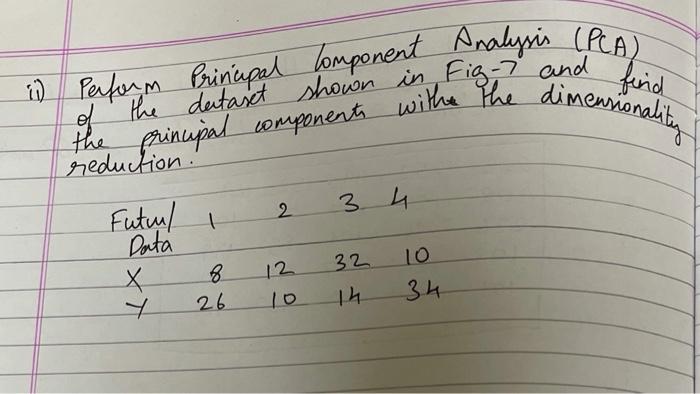 ii) Perform Prinicipal Component Analysis (PCA)
of the dataset shown in Fig-7 and find
the principal components withe the dimensionality
reduction.
Futur/ 1 2 3 4
Data
X 8 12 32 10
Y 26 10 14 34